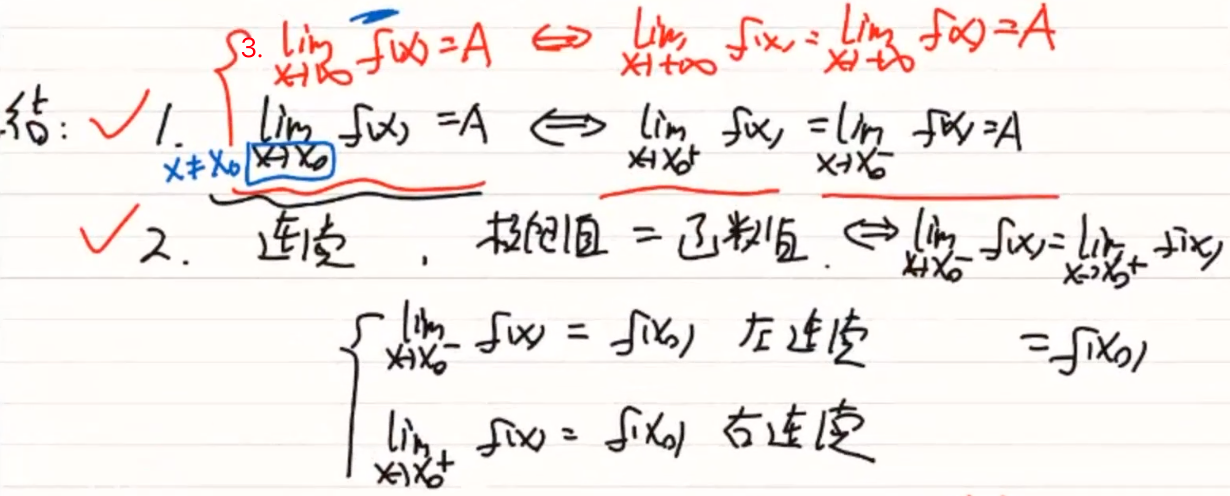 3. lim x→∞ f(x) = A ⇔ lim x→+∞ f(x) = lim x→-∞ f(x) = A
结: ✓ 1. lim x→x₀ f(x) = A ⇔ lim x→x₀⁺ f(x) = lim x→x₀⁻ f(x) = A
x≠x₀
✓ 2. 连续, 极限值 = 函数值. ⇔ lim x→x₀⁻ f(x) = lim x→x₀⁺ f(x)
= f(x₀)
lim x→x₀⁻ f(x) = f(x₀) 左连续
lim x→x₀⁺ f(x) = f(x₀) 右连续